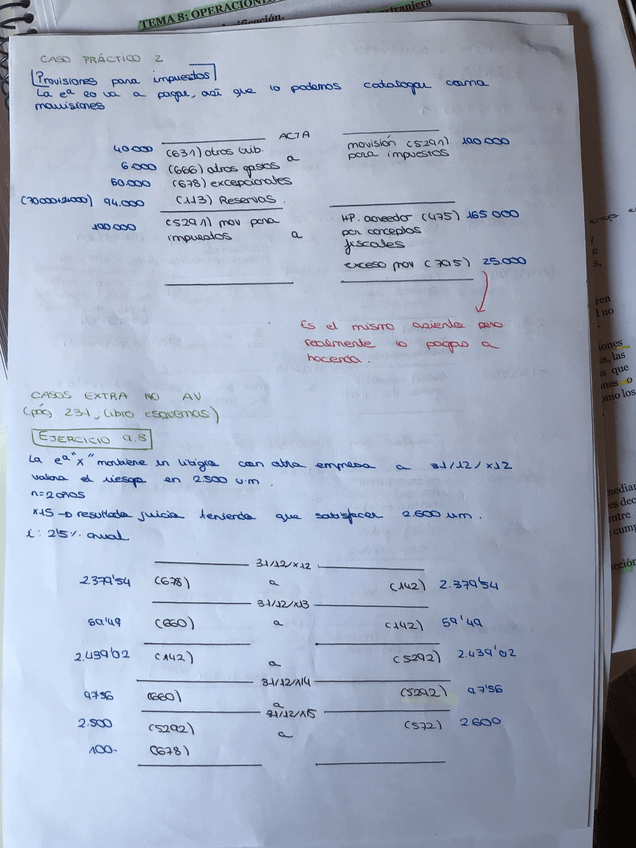 TEMA 8: OPERACIONE
CASO PRÁCTICO 2
Provisiones para impuestos
La eª lo va a pagar, así que lo podemos catalogar como
provisiones
ACTA
40.000 (631) otros trib. a provisión (5291) 190.000
6.000 (666) otros gastos para impuestos
50.000 (678) excepcionales
(70000+24000) 94.000 (113) Reservas.
190.000 (5291) prov para impuestos a HP. acreedor (475) 165.000
por conceptos
fiscales
exceso prov (795) 25.000
Es el mismo asiento pero
realmente lo pagas a
hacienda.
CASOS EXTRA NO AV
(pág 231, libro ESQUEMAS)
EJERCICIO 9.8
La eª "x" mantiene un litigio con otra empresa a 31/12/x12
valora el riesgo en 2.500 u.m.
n=2 años
x15 → resultado juicio teniendo que satisfacer 2.600 um.
i: 2'5% anual
31/12/x12
2.379'54 (678) a (142) 2.379'54
31/12/x13
59'49 (660) a (142) 59'49
2.439'02 (142) a (5292) 2.439'02
31/12/x14
97'56 (660) a (5292) 97'56
31/12/x15
2.500 (5292) a (572) 2600
100- (678)